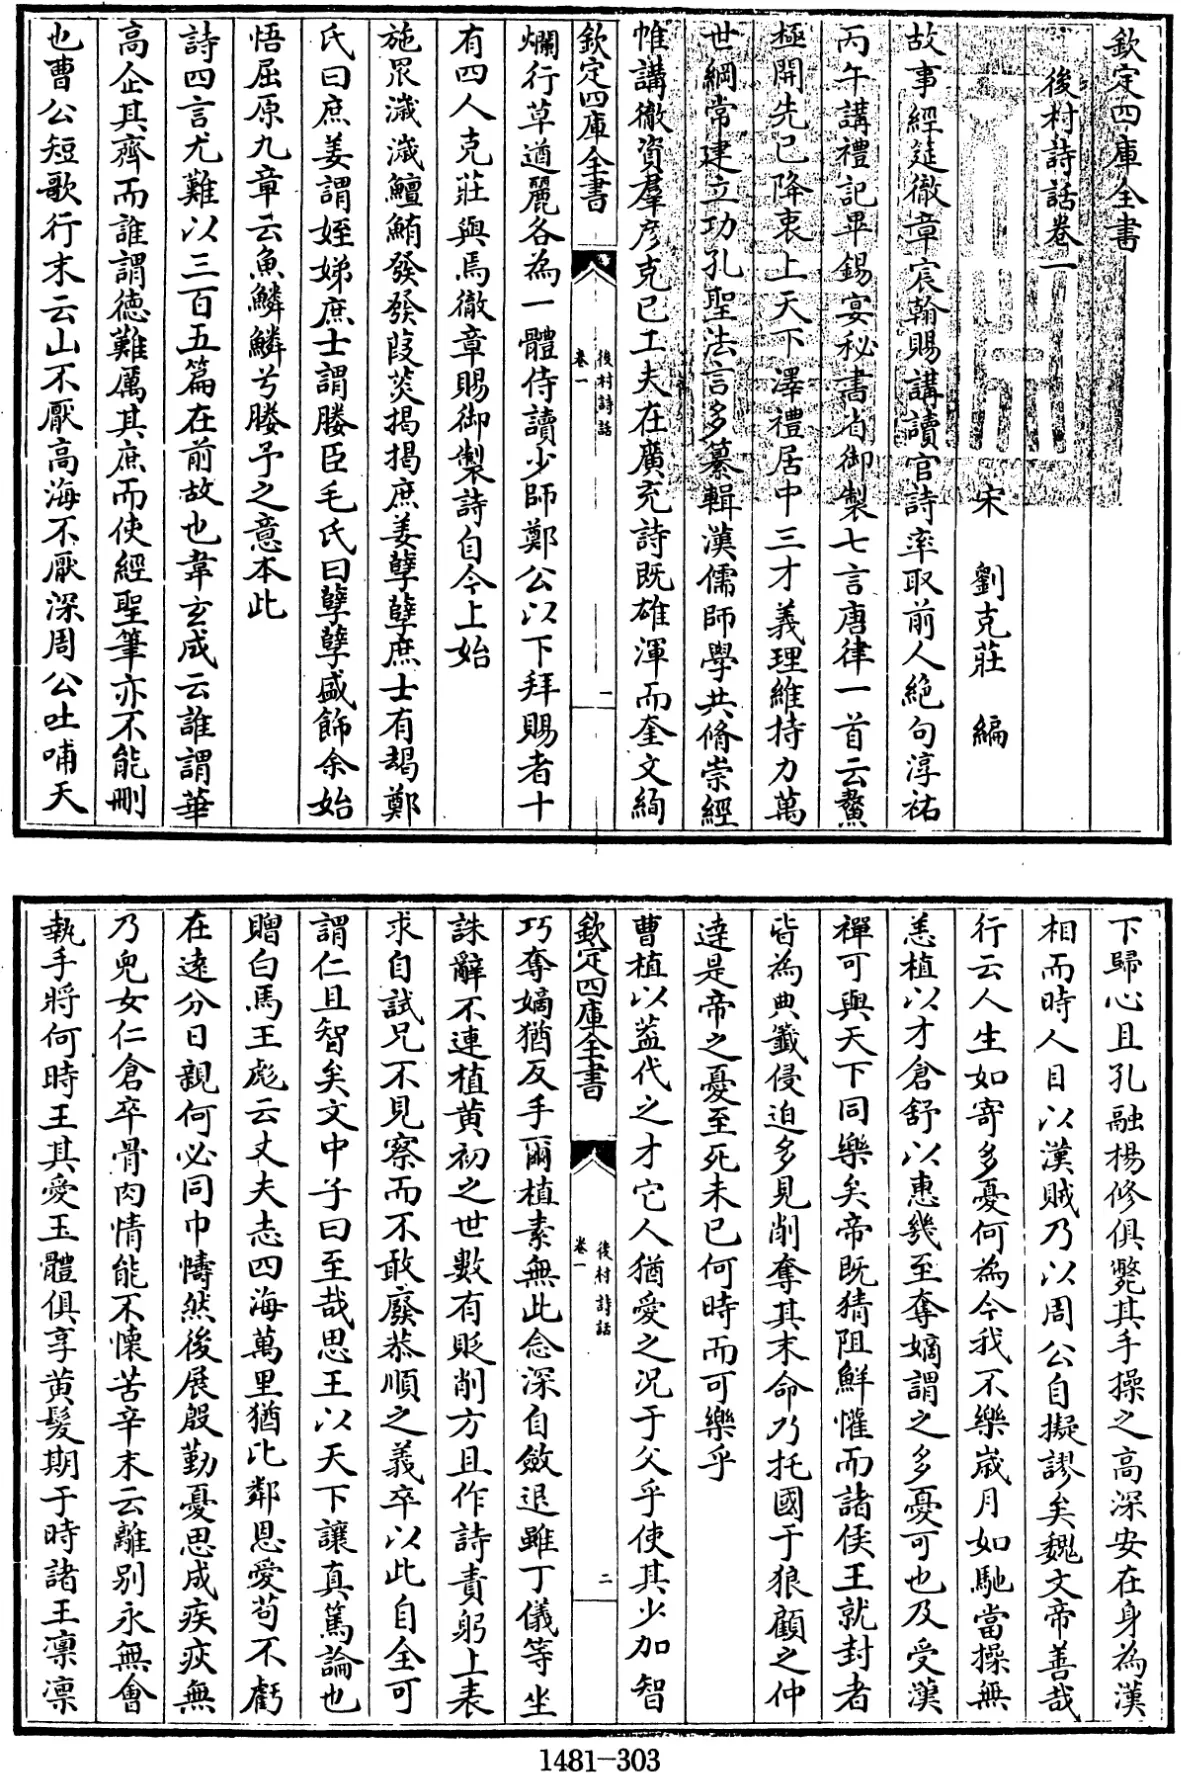 欽定四庫全書
後村詩話卷一
宋 劉克莊 編
故事經筵徹章宸翰賜講讀官詩率取前人絶句淳祐
丙午講禮記畢錫宴秘書省御製七言唐律一首云鰲
極開先已降衷上天下澤禮居中三才義理維持力萬
世綱常建立功孔聖法言多纂輯漢儒師學共脩崇經
帷講徹資羣彦克已工夫在廣充詩既雄渾而奎文絢
欽定四庫全書
後村詩話
卷一
一
爛行草遒麗各為一體侍讀少師鄭公以下拜賜者十
有四人克莊與焉徹章賜御製詩自今上始
施罛濊濊鱣鮪發發葭菼揭揭庶姜孽孽庶士有朅鄭
氏曰庶姜謂姪娣庶士謂媵臣毛氏曰孽孽盛飾余始
悟屈原九章云魚鱗鱗兮媵予之意本此
詩四言尤難以三百五篇在前故也韋玄成云誰謂華
高企其齊而誰謂徳難厲其庶而使經聖筆亦不能刪
也曹公短歌行末云山不厭高海不厭深周公吐哺天
下歸心且孔融楊修俱斃其手操之高深安在身為漢
相而時人目以漢賊乃以周公自擬謬矣魏文帝善哉
行云人生如寄多憂何為今我不樂嵗月如馳當操無
恙植以才倉舒以惠幾至奪嫡謂之多憂可也及受漢
禪可與天下同樂矣帝既猜阻鮮懽而諸侯王就封者
皆為典籖侵迫多見削奪其末命乃托國于狼顧之仲
達是帝之憂至死未已何時而可樂乎
曹植以葢代之才它人猶愛之况于父乎使其少加智
欽定四庫全書
後村詩話
卷一
二
巧奪嫡猶反手爾植素無此念深自斂退雖丁儀等坐
誅辭不連植黄初之世數有貶削方且作詩責躬上表
求自試兄不見察而不敢廢恭順之義卒以此自全可
謂仁且智矣文中子曰至哉思王以天下讓真篤論也
贈白馬王彪云丈夫志四海萬里猶比鄰恩愛苟不虧
在逺分日親何必同巾幬然後展殷勤憂思成疾疢無
乃兒女仁倉卒骨肉情能不懷苦辛末云離别永無會
執手將何時王其愛玉體俱享黄髮期于時諸王凛凛
1481-303